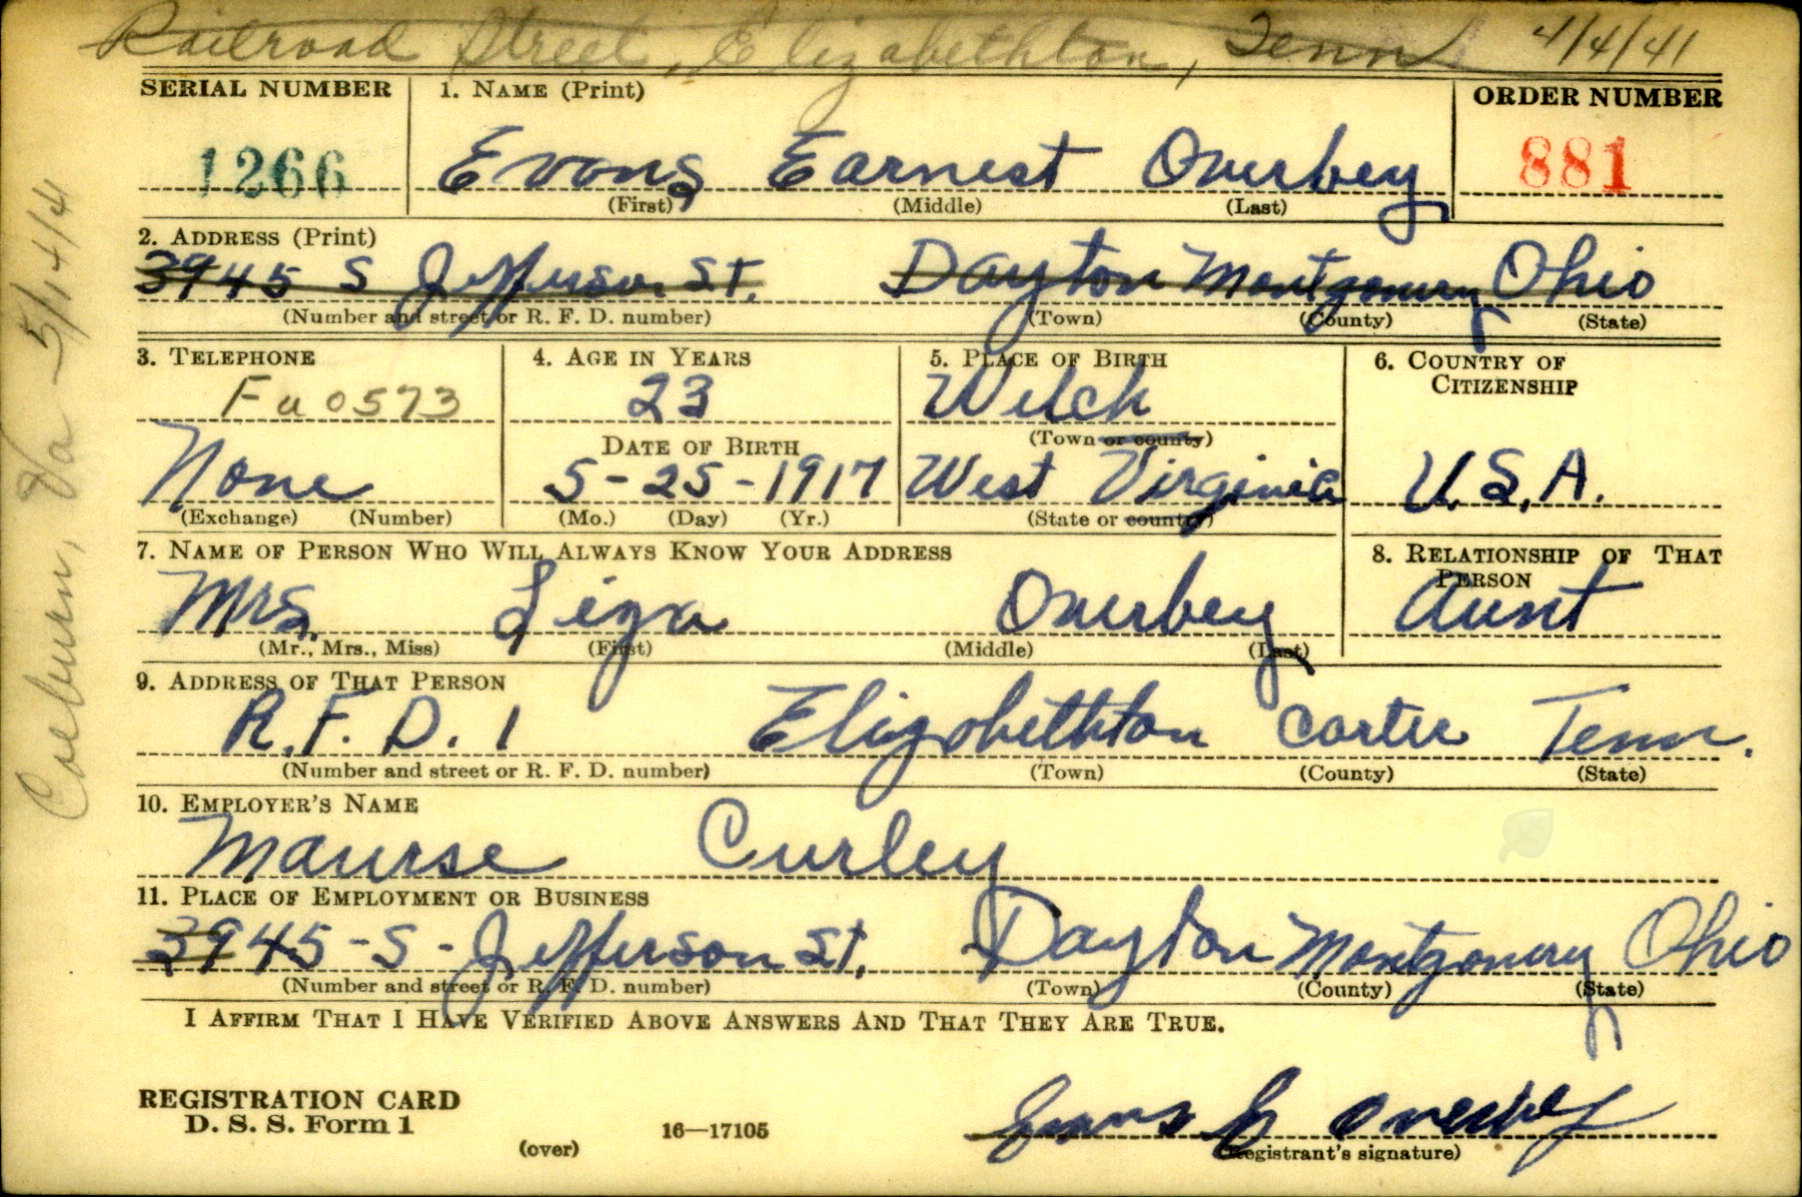 Railroad Street, Elizabethton, Tenn 4/4/41
SERIAL NUMBER 1. NAME (Print) ORDER NUMBER
1266 Evans Earnest Overbey 881
(First) (Middle) (Last)
2. ADDRESS (Print)
3945 S Jefferson ST. Dayton Montgomery Ohio
(Number and street or R. F. D. number) (Town) (County) (State)
3. TELEPHONE 4. AGE IN YEARS 5. PLACE OF BIRTH 6. COUNTRY OF CITIZENSHIP
Fu 0573 23 Welch
DATE OF BIRTH (Town or county)
None 5-25-1917 West Virginia U.S.A.
(Exchange) (Number) (Mo.) (Day) (Yr.) (State or country)
7. NAME OF PERSON WHO WILL ALWAYS KNOW YOUR ADDRESS 8. RELATIONSHIP OF THAT PERSON
Mrs. Liza Overbey Aunt
(Mr., Mrs., Miss) (First) (Middle) (Last)
9. ADDRESS OF THAT PERSON
R.F.D. 1 Elizabethton Carter Tenn.
(Number and street or R. F. D. number) (Town) (County) (State)
10. EMPLOYER'S NAME
Maurse Curley
11. PLACE OF EMPLOYMENT OR BUSINESS
3945-S-Jefferson ST. Dayton Montgomery Ohio
(Number and street or R. F. D. number) (Town) (County) (State)
I AFFIRM THAT I HAVE VERIFIED ABOVE ANSWERS AND THAT THEY ARE TRUE.
REGISTRATION CARD
D. S. S. Form 1
(over) 16—17105
Evans E Overbey
(Registrant's signature)
Coeburn, Va 5/14/4